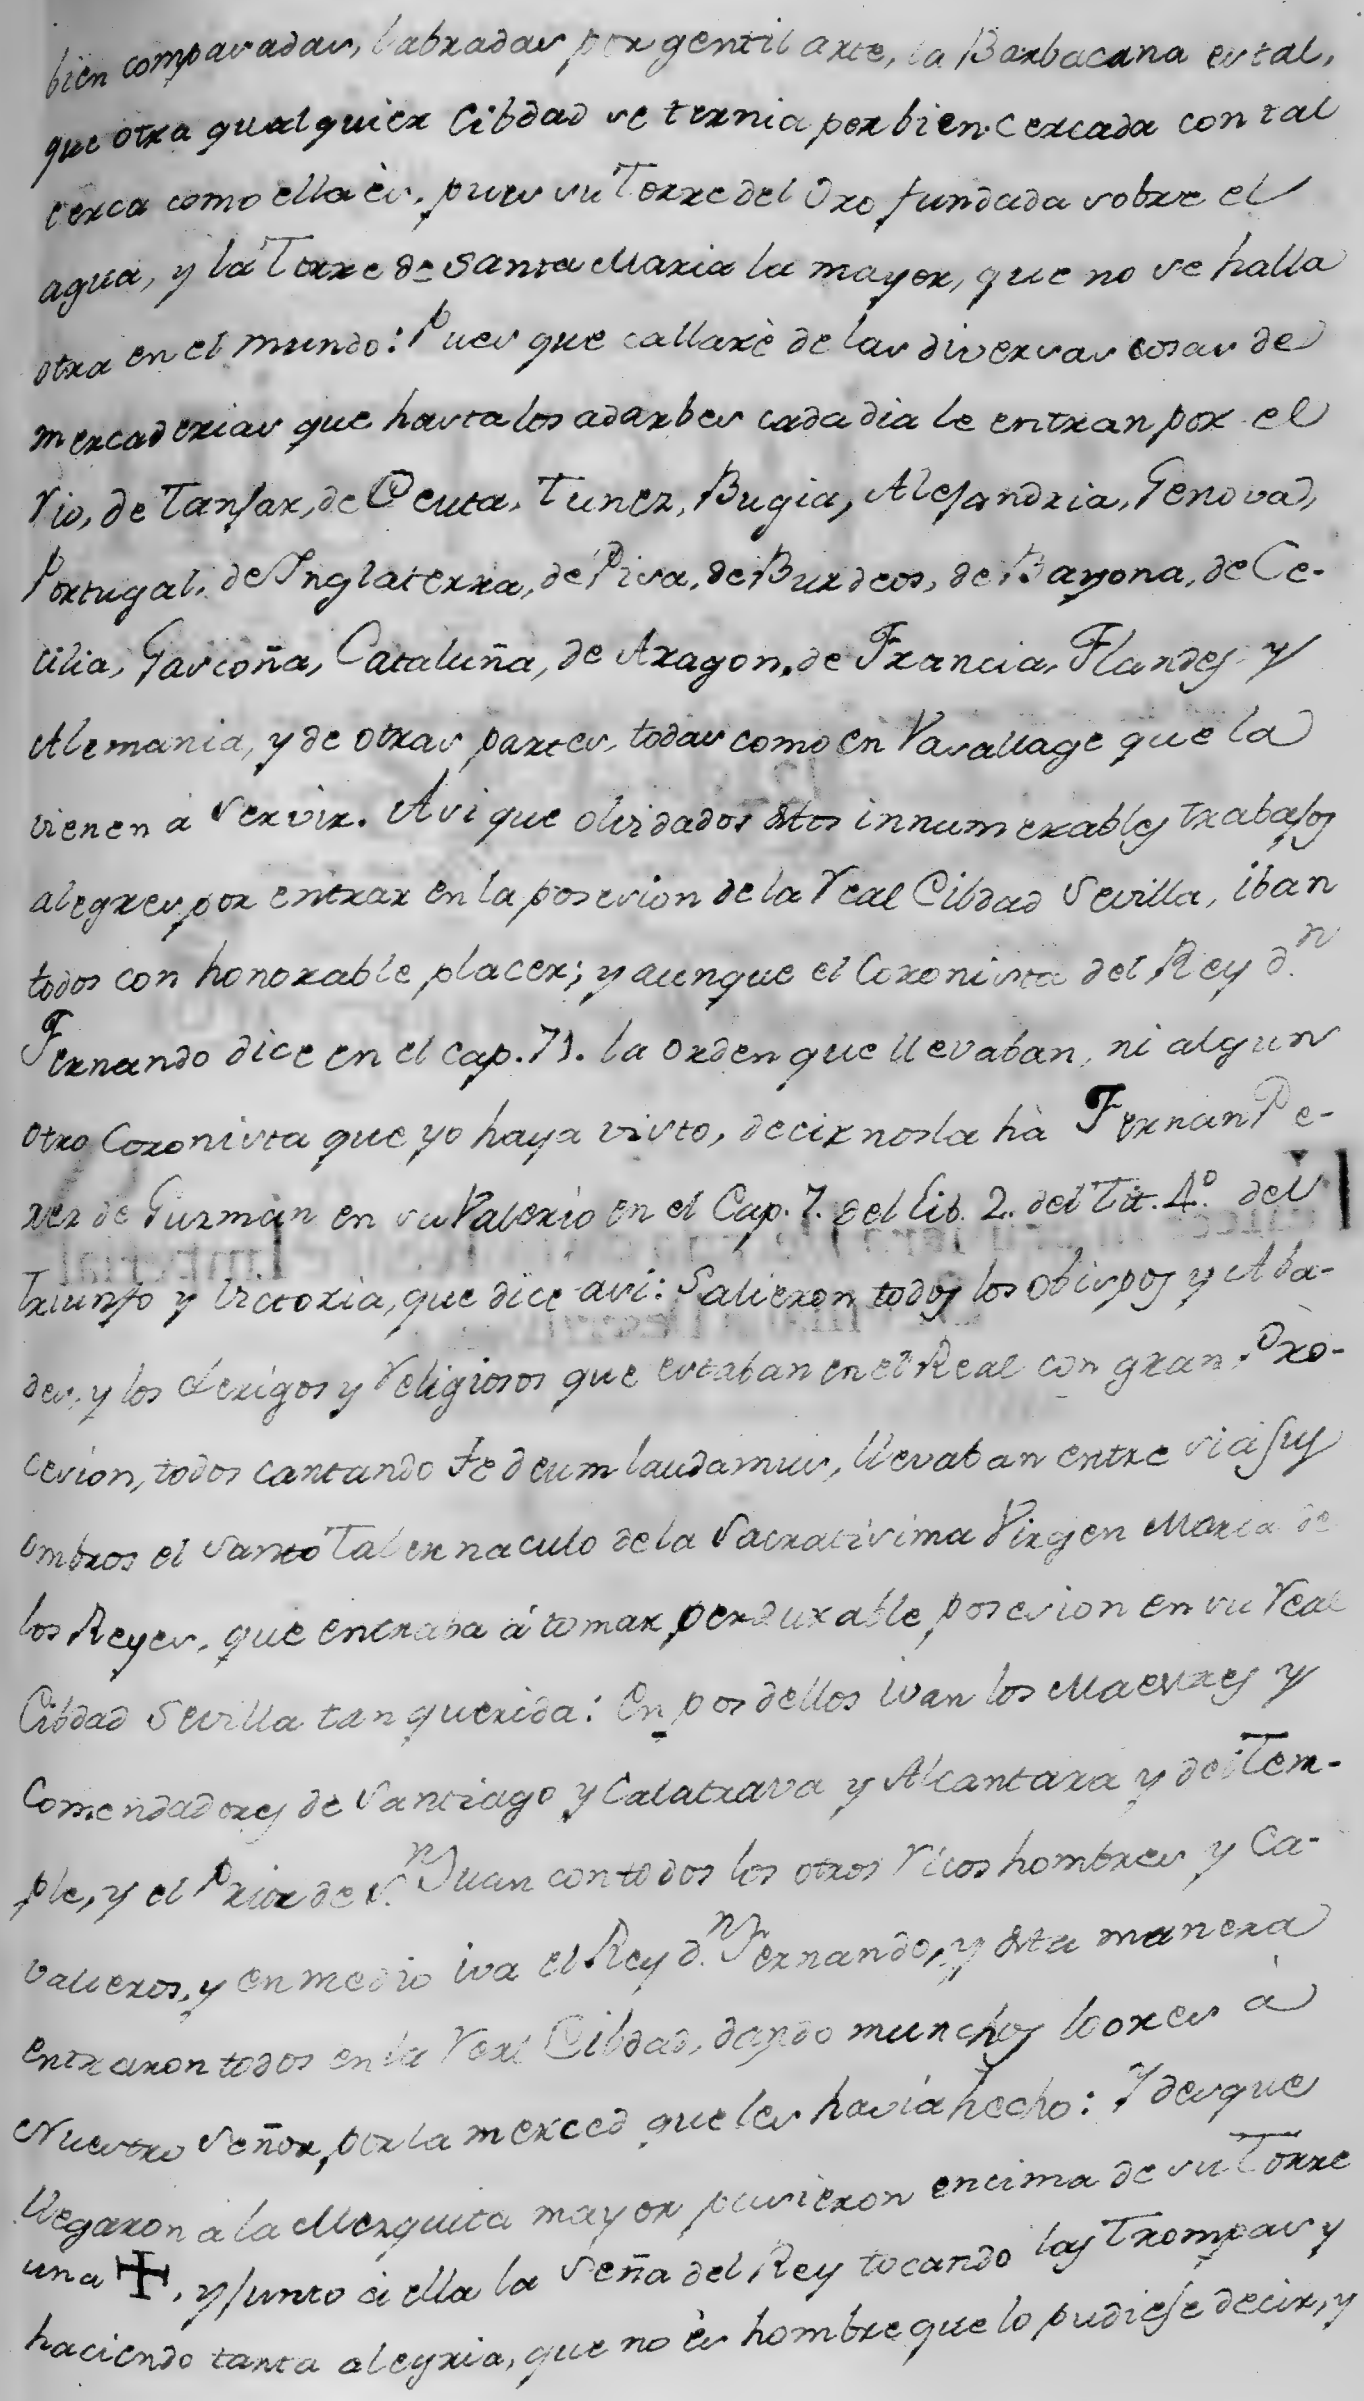 bien comparadas, labradas por gentil arte, la Barbacana es tal,
que otra qualquier Cibdad se ternia por bien cercada con tal
cerca como ella ès. pues su Torre del Oro fundada sobre el
agua, y la Torre de Santa Maria la mayor, que no se halla
otra en el mundo: Pues que callarè de las diversas cosas de
mercaderias que hasta los adarbes cada dia le entran por el
rio, de Tanjar, de Ceuta, Tunez, Bugia, Alejandria, Genova,
Portugal, de Inglaterra, de Pisa, de Burdeos, de Bayona, de Ce-
cilia, Gascoña, Cataluña, de Aragon, de Francia, Flandes y
Alemania, y de otras partes, todas como en Vasallage que la
vienen à servir. Asi que olvidados estos innumerables trabajos
alegres por entrar en la posesion de la real Cibdad Sevilla, iban
todos con honorable placer; y aunque el Coronista del Rey d.n
Fernando dice en el cap. 71. la orden que llevaban, ni algun
otro Coronista que yo haya visto, decirnosla hà Fernan Pe-
rez de Guzman en su Valerio en el Cap. 7. del Lib. 2. del Tit. 4.º del
Triunfo y Victoria, que dice asi: Salieron todos los obispos y Aba-
des, y los clerigos y religiosos que estaban en el Real con gran Pro-
cesion, todos cantando Te deum laudamus, llevaban entre si à sus
ombros el santo Tabernaculo de la Sacratisima Virgen Maria de
los Reyes, que entraba à tomar perdurable posesion en su real
Cibdad Sevilla tan querida: En pos dellos ivan los Maestres y
Comendadores de Santiago y Calatrava y Alcantara y del Tem-
ple, y el Prior de S.n Juan con todos los otros ricos hombres y Ca-
valleros, y en medio iva el Rey d.n Fernando, y esta manera
entraron todos en la real Cibdad, dando munchos loores à
Nuestro Señor, por la merced que les havia hecho: Y desque
llegaron a la Mezquita mayor pusieron encima de su Torre
una ✠, y junto à ella la Seña del Rey tocando las Trompas y
haciendo tanta alegria, que no ès hombre que lo pudiese decir, y